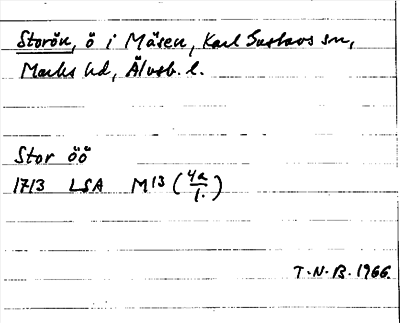 Storön, ö i Mäsen, Karl Gustavs sn,
Marks hd, Älvsb. l.
Stor öö
1713 LSA M13 (4a/1.)
T.N.B. 1966.